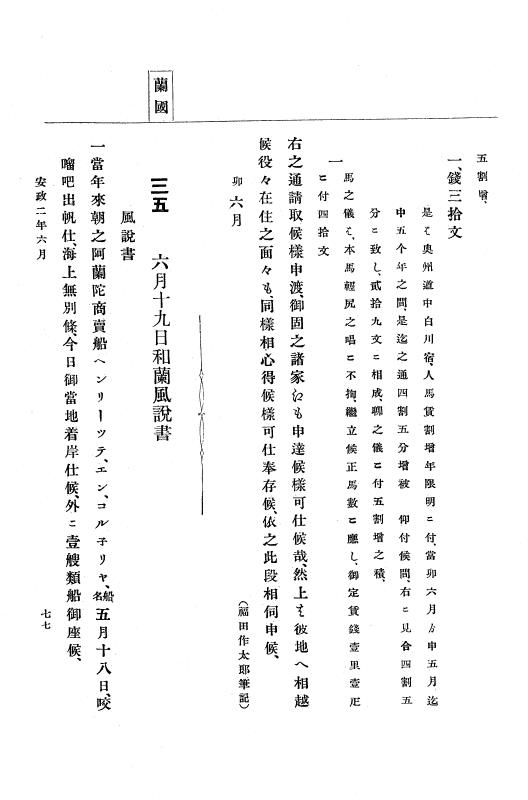 蘭國
五割增、
一、錢三拾文
是ハ奥州道中白川宿、人馬賃割增年限明ニ付、當卯六月ゟ申五月迄
申五个年之間、是迄之通四割五分增被　仰付候間、右ニ見合四割五
分ニ致し、貳拾九文ニ相成、聊之儀ニ付五割增之積、
一　馬之儀ハ、本馬輕尻之唱ニ不拘、繼立候正馬數ニ應し、御定賃錢壹里壹疋
ニ付四拾文
右之通請取候樣申渡、御固之諸家ゟも申達候樣可仕候哉、然上ハ彼地へ相越
候役々在住之面々も、同樣相心得候樣可仕奉存候、依之此段相伺申候、
卯六月
（福田作太郎筆記）
三五　六月十九日和蘭風說書
風說書
一當年來朝之阿蘭陀商賣船ヘンリーツテ、エン、コル子リヤ、船名五月十八日、咬
𠺕吧出帆仕、海上無別條、今日御當地着岸仕候、外ニ壹艘類船御座候、
安政二年六月
七七